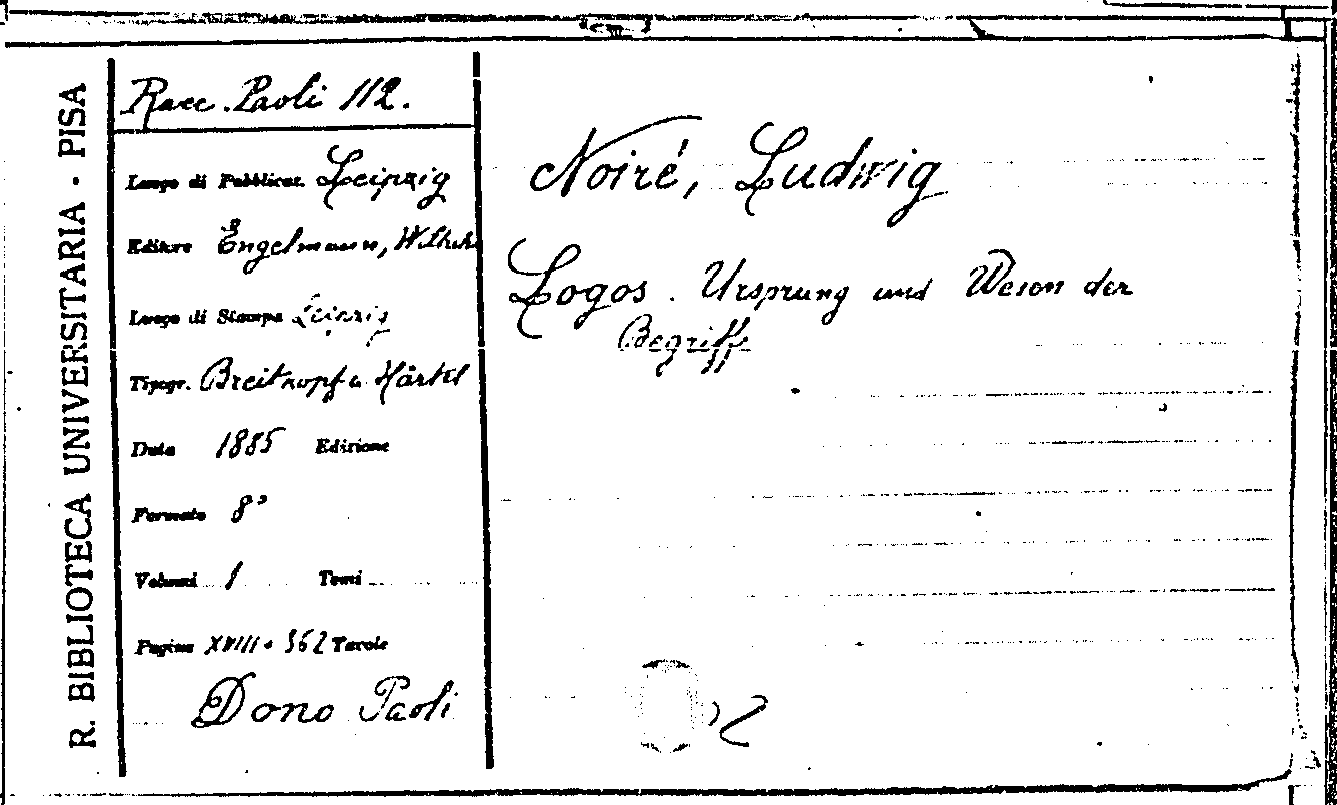 R. BIBLIOTECA UNIVERSITARIA - PISA
Racc. Paoli 112.
Luogo di Pubblicaz. Leipzig
Editore Engelmann, Wilhelm
Luogo di Stampa Leipzig
Tipogr. Breitkopf u Härtel
Data 1885 Edizione
Formato 8°
Volumi 1 Tomi
Pagine XVIII + 362 Tavole
Dono Paoli
Noiré, Ludwig
Logos. Ursprung und Wesen der
Begriffe